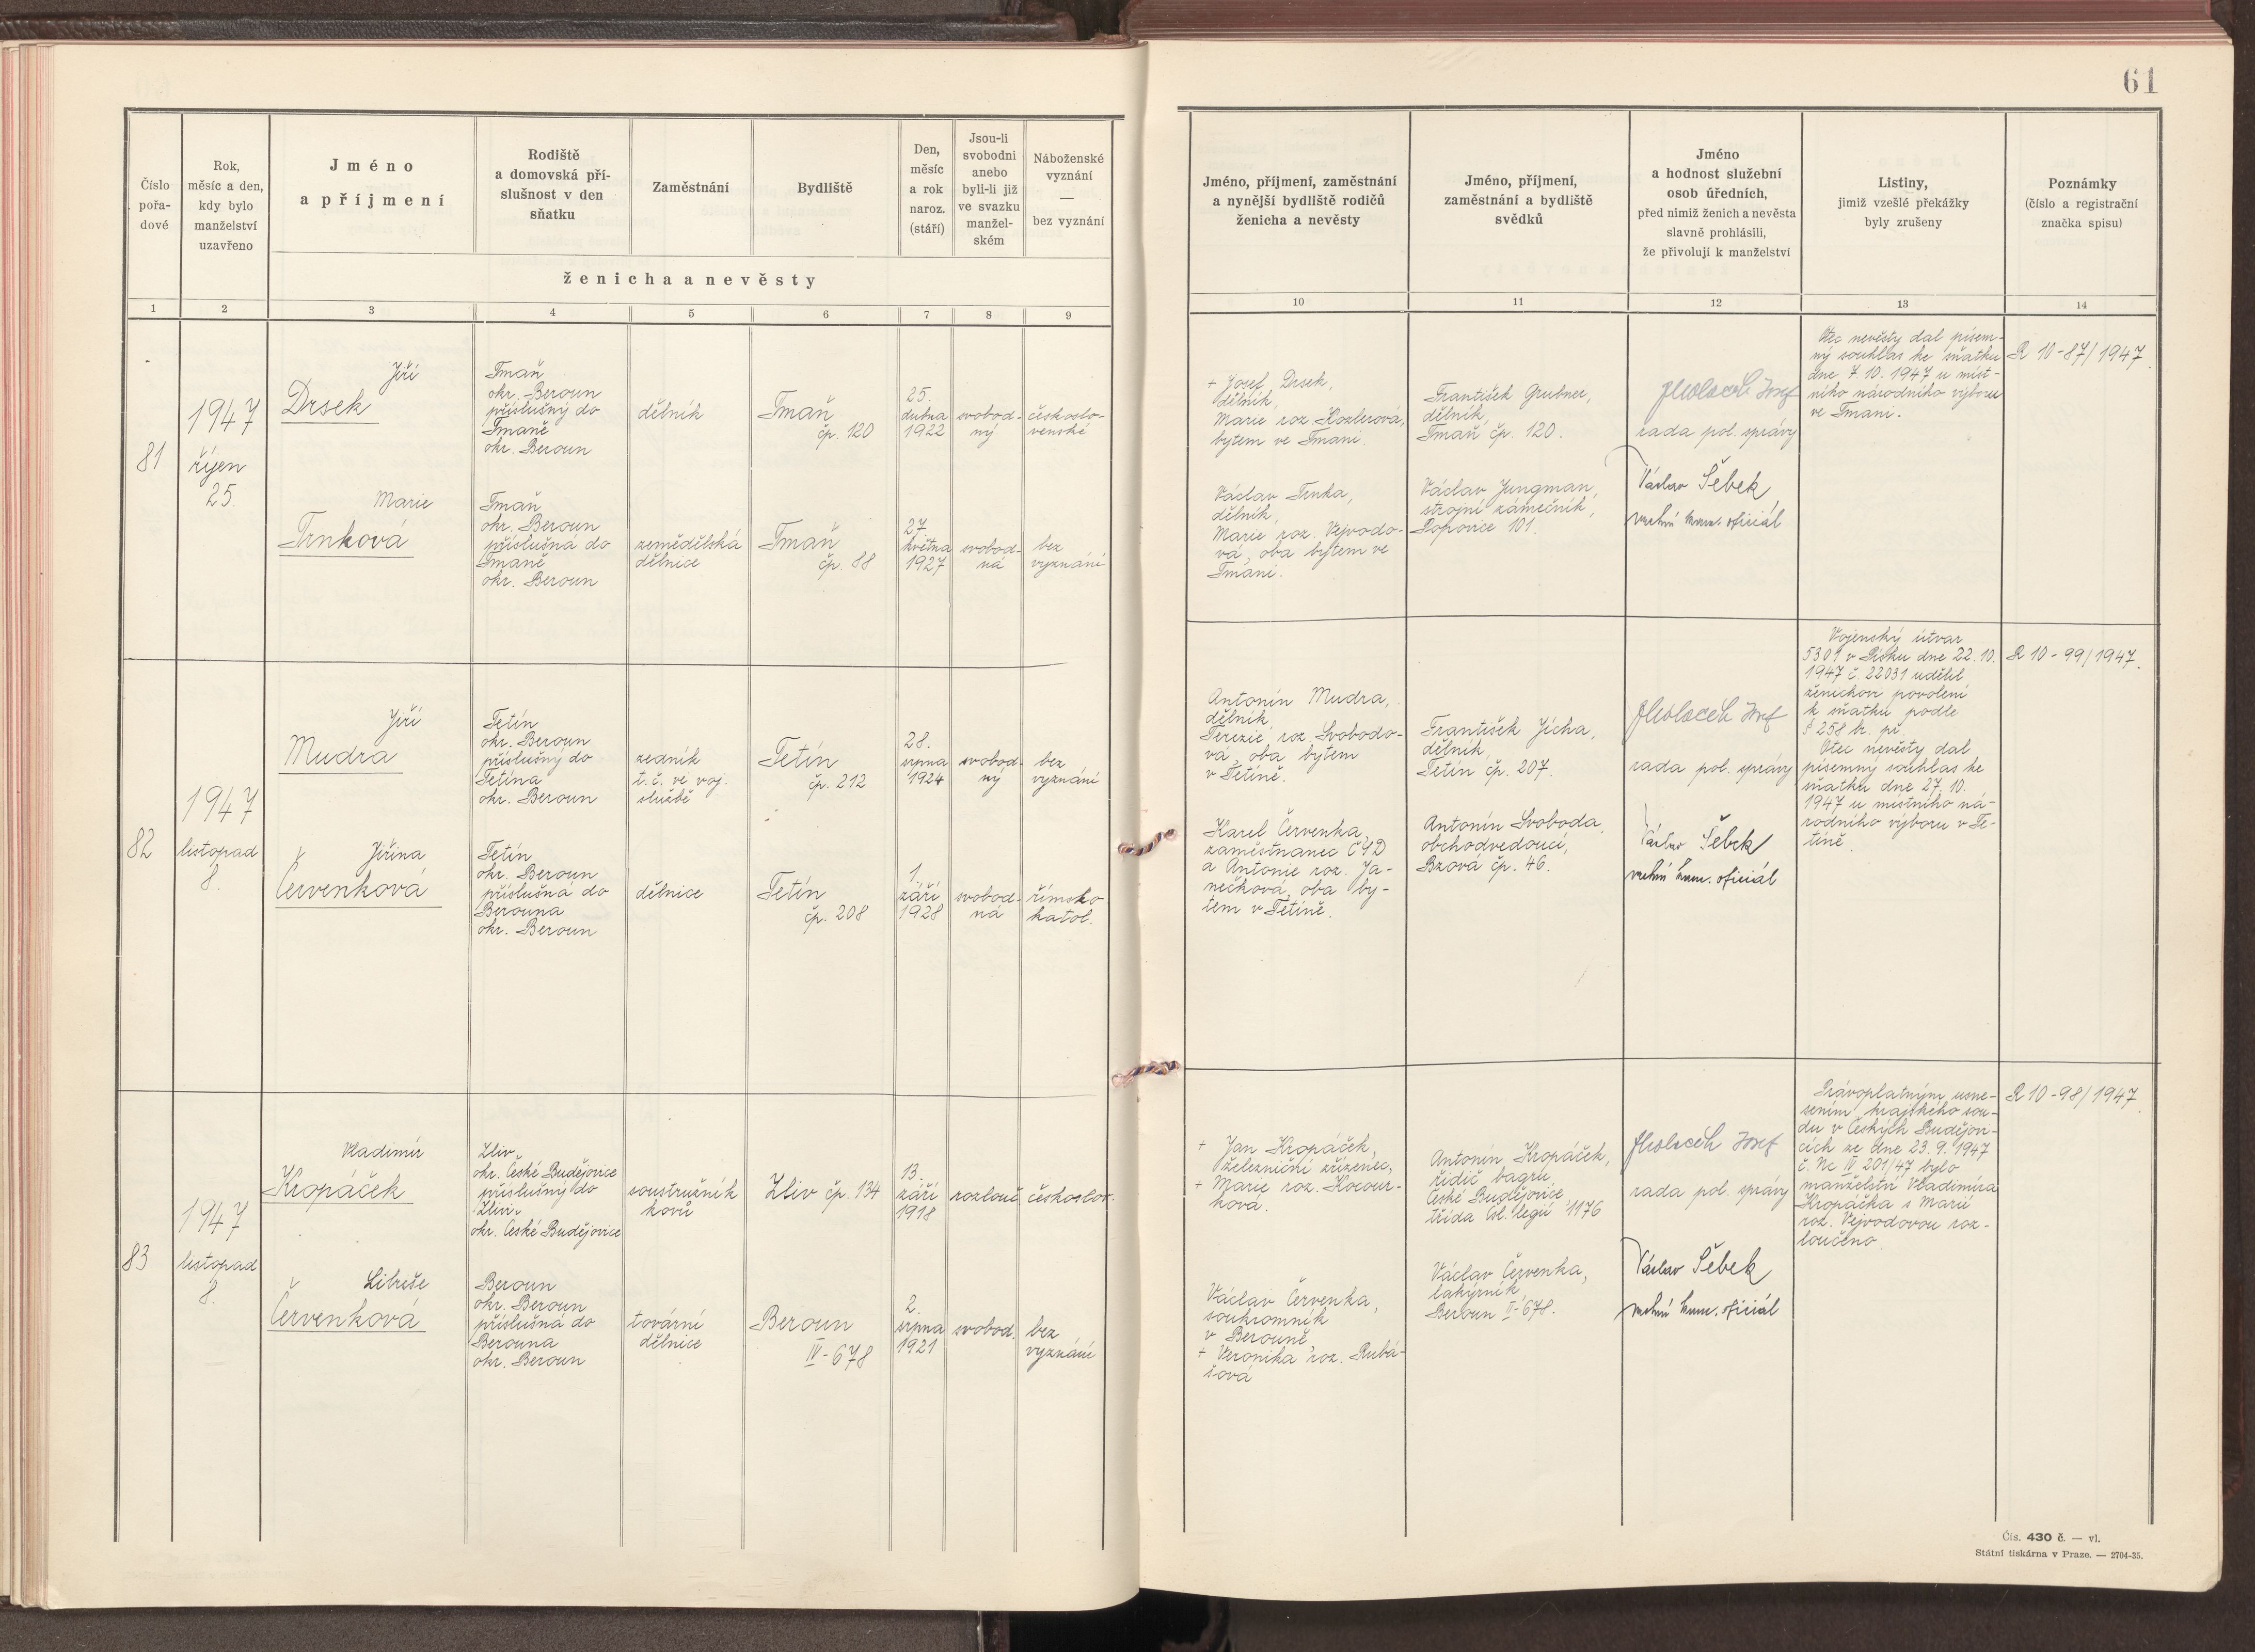 61
Číslo
pořa-
dové
Rok,
měsíc a den,
kdy bylo
manželství
uzavřeno
Jméno
a příjmení
Rodiště
a domovská pří-
slušnost v den
sňatku
Zaměstnání
Bydliště
Den,
měsíc
a rok
naroz.
(stáří)
Jsou-li
svobodni
anebo
byli-li již
ve svazku
manžel-
ském
Náboženské
vyznání
—
bez vyznání
ženicha a nevěsty
Jméno, příjmení, zaměstnání
a nynější bydliště rodičů
ženicha a nevěsty
Jméno, příjmení,
zaměstnání a bydliště
svědků
Jméno
a hodnost služební
osob úředních,
před nimiž ženich a nevěsta
slavně prohlásili,
že přivolují k manželství
Listiny,
jimiž vzešlé překážky
byly zrušeny
Poznámky
(číslo a registrační
značka spisu)
1 2 3 4 5 6 7 8 9 10 11 12 13 14
81
1947
říjen
25.
Jiří
Drsek
Tmaň
okr. Beroun
příslušný do
Tmaně
okr. Beroun
dělník
Tmaň
čp. 120
25.
dubna
1922
svobod-
ný
českoslo-
venské
Marie
Trnková
Tmaň
okr. Beroun
příslušná do
Tmaně
okr. Beroun
zemědělská
dělnice
Tmaň
čp. 88
27.
května
1927
svobod-
ná
bez
vyznání
+ Josef Drsek,
dělník,
Marie roz. Kozlerová,
bytem ve Tmani.
Václav Trnka,
dělník,
Marie roz. Vejvodo-
vá, oba bytem ve
Tmani.
František Grubner,
dělník,
Tmaň čp. 120.
Václav Jungman,
strojní zámečník,
Popovice 101.
Josef
rada pol. správy
Václav Šebek
vrchní kanc. oficiál
Otec nevěsty dal písem-
ný souhlas ke sňatku
dne 7. 10. 1947 u míst-
ního národního výboru
ve Tmani.
R 10-87/1947.
82
1947
listopad
8.
Jiří
Mudra
Tetín
okr. Beroun
příslušný do
Tetína
okr. Beroun
zedník
t. č. ve voj.
službě
Tetín
čp. 212
28.
srpna
1924
svobod-
ný
bez
vyznání
Jiřina
Červenková
Tetín
okr. Beroun
příslušná do
Berouna
okr. Beroun
dělnice
Tetín
čp. 208
1.
září
1928
svobod-
ná
římsko
katol.
Antonín Mudra,
dělník,
Terezie roz. Svobodo-
vá, oba bytem
v Tetíně.
Karel Červenka,
zaměstnanec ČSD
a Antonie roz. Ja-
nečková, oba by-
tem v Tetíně.
František Jícha,
dělník,
Tetín čp. 207.
Antonín Svoboda,
obchodvedoucí,
Bzová čp. 46.
Josef
rada pol. správy
Václav Šebek
vrchní kanc. oficiál
Vojenský útvar
5301 v Písku dne 22. 10.
1947 č. 22031 udělil
ženichovi povolení
k sňatku podle
§ 258 br. př.
Otec nevěsty dal
písemný souhlas ke
sňatku dne 27. 10.
1947 u místního ná-
rodního výboru v Te-
tíně.
R 10-99/1947.
83
1947
listopad
8.
Vladimír
Kropáček
Zliv
okr. České Budějovice
příslušný do
Zlivi
okr. České Budějovice
soustružník
kovů
Zliv čp. 134
13.
září
1918
rozlouč.
českoslov.
Libuše
Červenková
Beroun
okr. Beroun
příslušná do
Berouna
okr. Beroun
tovární
dělnice
Beroun
IV-678
2.
srpna
1921
svobod.
bez
vyznání
+ Jan Kropáček,
železniční zřízenec,
+ Marie roz. Kocour-
ková.
Václav Červenka,
soukromník
v Berouně
+ Veronika roz. Rubá-
šová
Antonín Kropáček,
řidič bagru,
České Budějovice
třída Čsl. legií 1176
Václav Červenka,
lakýrník,
Beroun II-678.
Josef
rada pol. správy
Václav Šebek
vrchní kanc. oficiál
Právoplatným usne-
sením krajského sou-
du v Českých Budějovi-
cích ze dne 23. 9. 1947
č. Nc IV 201/47 bylo
manželství Vladimíra
Kropáčka s Marií
roz. Vejvodovou roz-
loučeno.
R 10-98/1947.
Čís. 430 č. — vl.
Státní tiskárna v Praze. — 2704-35.